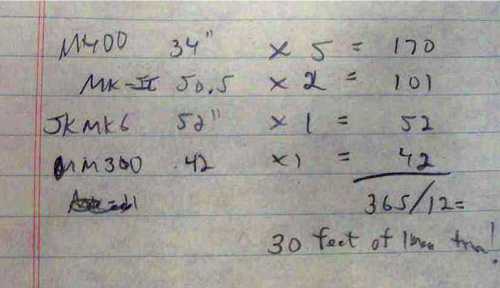 M400 34" x 5 = 170
MK-II 50.5 x 2 = 101
JKMK6 52" x 1 = 52
MM300 42 x 1 = 42
365/12=
30 feet of